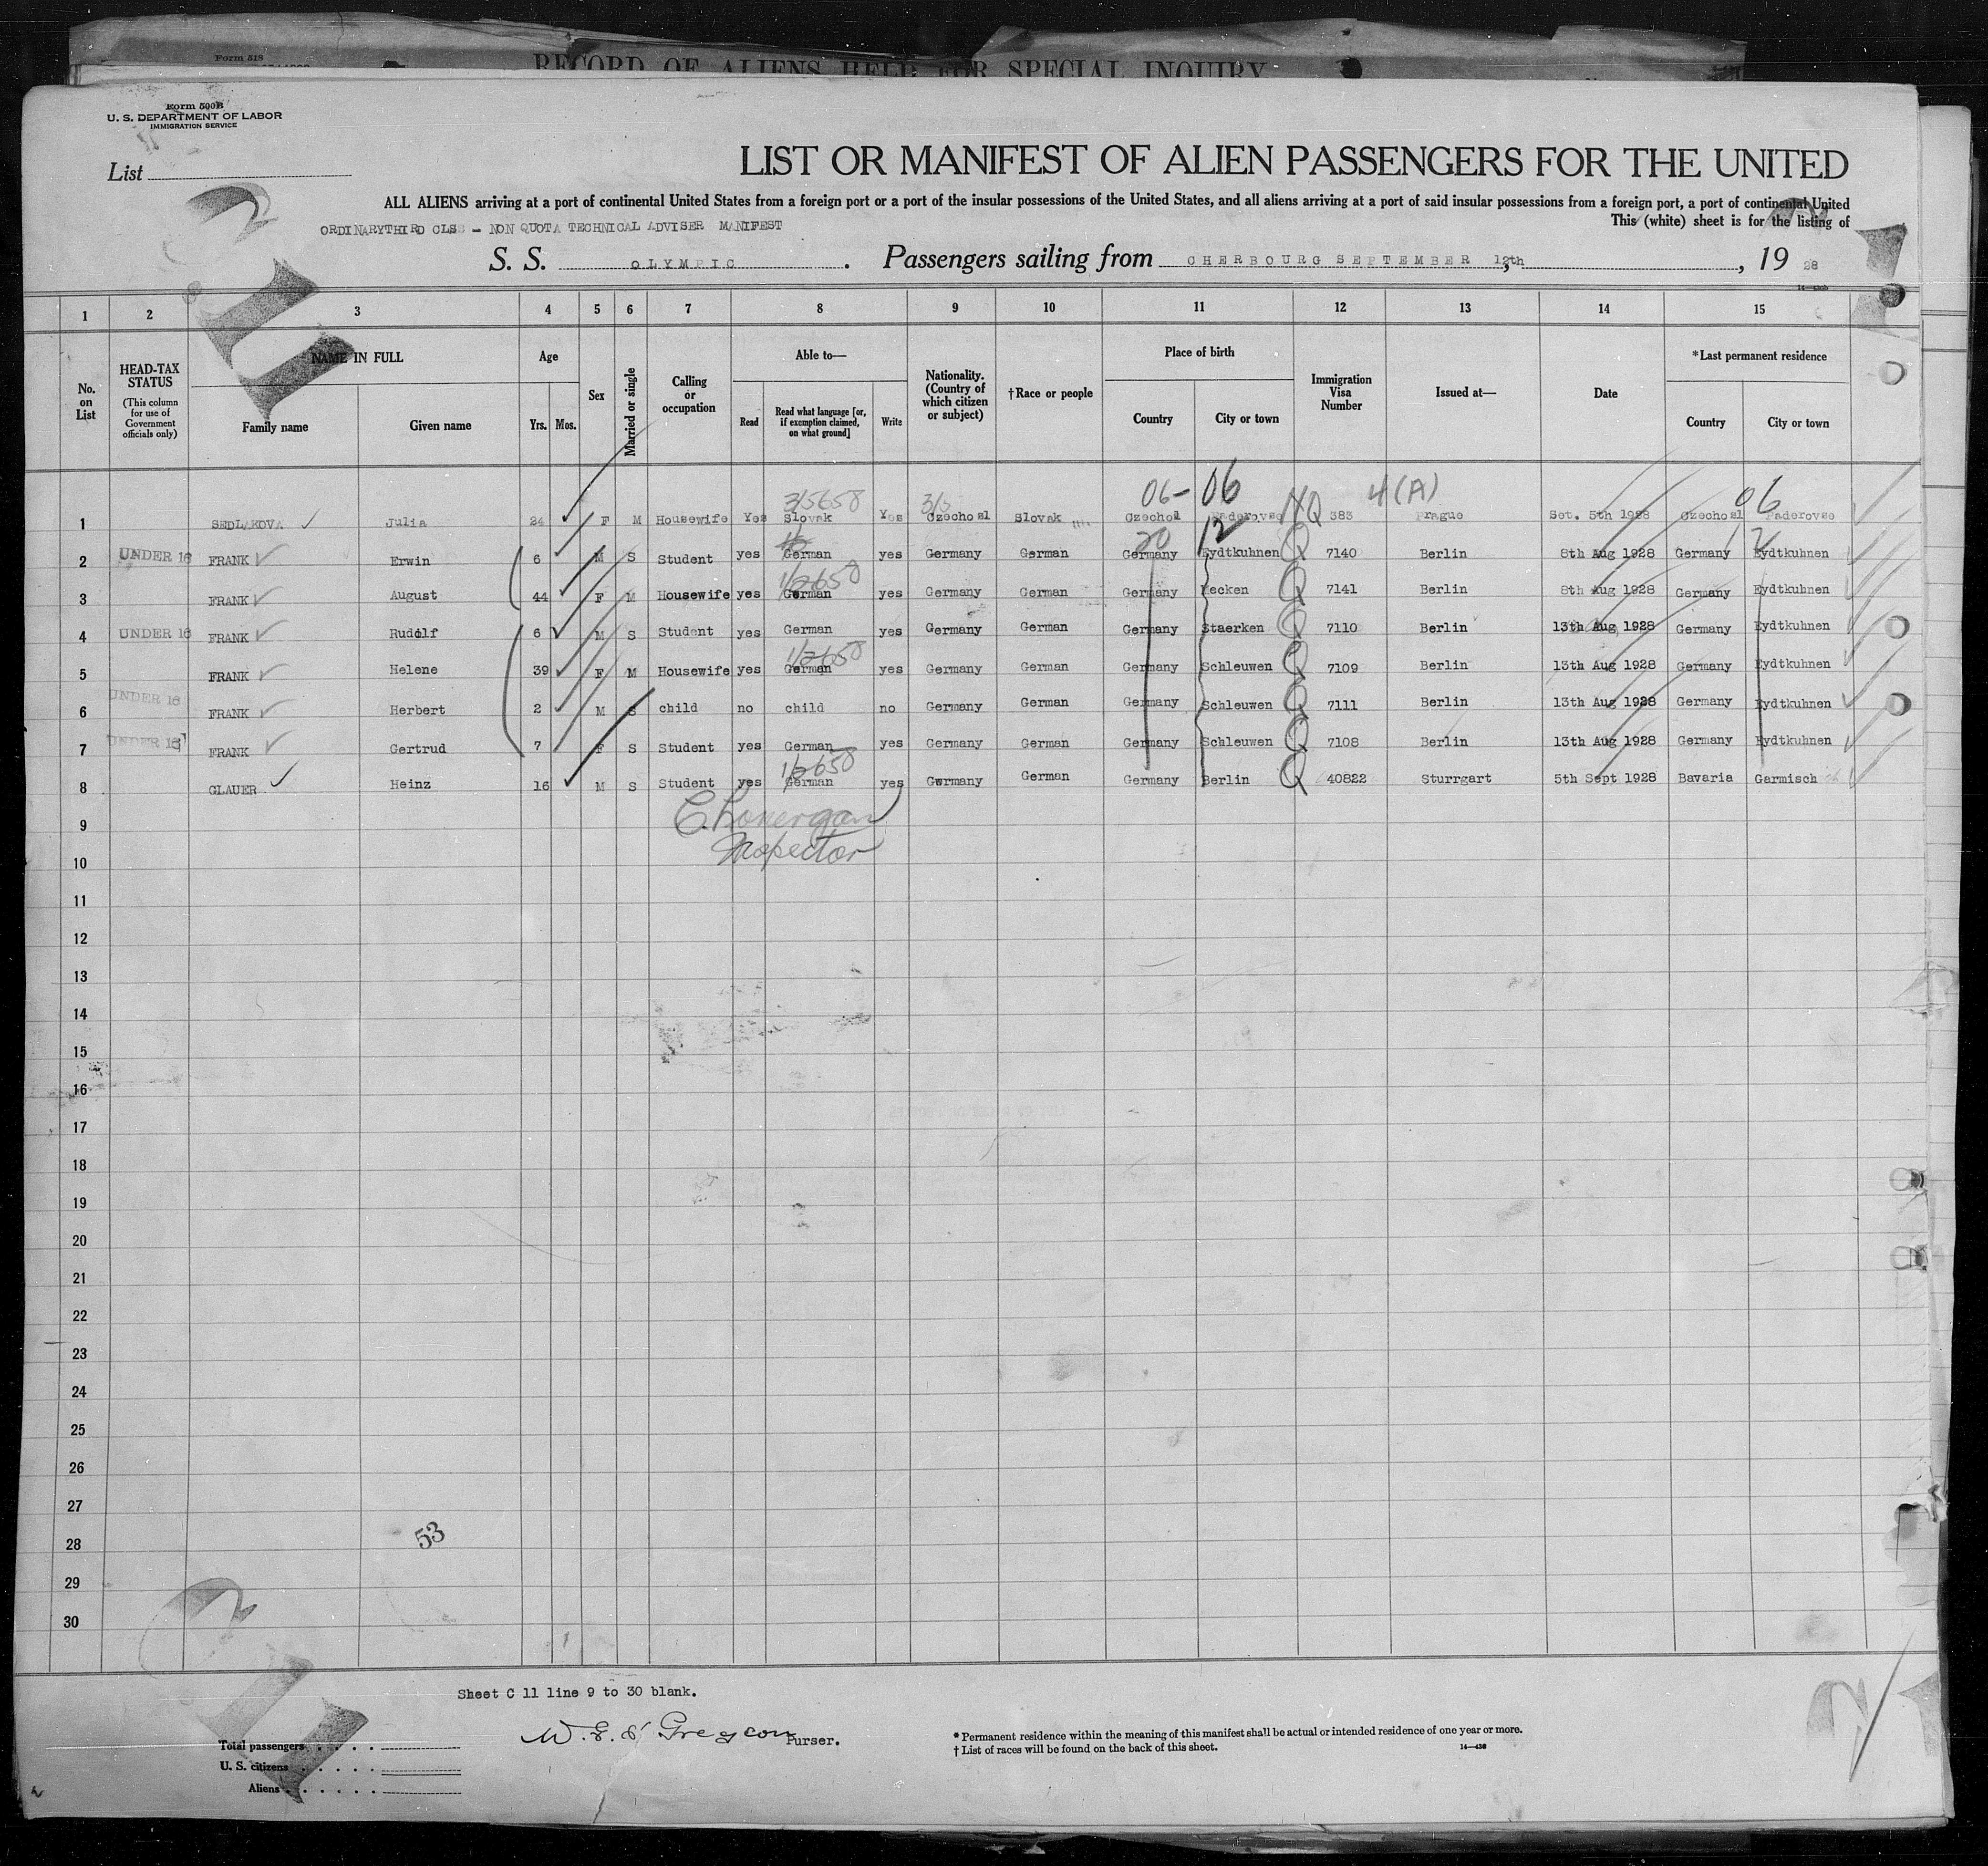 Form 518
RECORD OF ALIENS HELD FOR SPECIAL INQUIRY
Form 500B
U. S. DEPARTMENT OF LABOR
IMMIGRATION SERVICE
List
LIST OR MANIFEST OF ALIEN PASSENGERS FOR THE UNITED
ALL ALIENS arriving at a port of continental United States from a foreign port or a port of the insular possessions of the United States, and all aliens arriving at a port of said insular possessions from a foreign port, a port of continental United
This (white) sheet is for the listing of
ORDINARYTHIRD CLSS - NON QUOTA TECHNICAL ADVISER MANIFEST
S. S. OLYMPIC. Passengers sailing from CHERBOURG SEPTEMBER 12th, 19 28
1 2 3 4 5 6 7 8 9 10 11 12 13 14 15
No. on List
HEAD-TAX STATUS
(This column for use of Government officials only)
NAME IN FULL
Family name Given name
Age
Yrs. Mos.
Sex
Married or single
Calling or occupation
Able to—
Read Read what language [or, if exemption claimed, on what ground] Write
Nationality. (Country of which citizen or subject)
†Race or people
Place of birth
Country City or town
Immigration Visa Number
Issued at—
Date
*Last permanent residence
Country City or town
3/5658 3/5 06- 06 NQ 4(A) 06
1 SEDLAKOVA Julia 24 F M Housewife Yes Slovak Yes Czechosl Slovak Czechol Paderovse 383 Prague Set. 5th 1928 Czechosl Paderovse
20 12 12
2 UNDER 16 FRANK Erwin 6 M S Student yes German yes Germany German Germany Eydtkuhnen Q 7140 Berlin 8th Aug 1928 Germany Eydtkuhnen
1/2650
3 FRANK August 44 F M Housewife yes German yes Germany German Germany Mecken Q 7141 Berlin 8th Aug 1928 Germany Eydtkuhnen
4 UNDER 16 FRANK Rudolf 6 M S Student yes German yes Germany German Germany Staerken Q 7110 Berlin 13th Aug 1928 Germany Eydtkuhnen
1/2650
5 FRANK Helene 39 F M Housewife yes German yes Germany German Germany Schleuwen Q 7109 Berlin 13th Aug 1928 Germany Eydtkuhnen
6 UNDER 16 FRANK Herbert 2 M S child no child no Germany German Germany Schleuwen Q 7111 Berlin 13th Aug 1928 Germany Eydtkuhnen
7 UNDER 16 FRANK Gertrud 7 F S Student yes German yes Germany German Germany Schleuwen Q 7108 Berlin 13th Aug 1928 Germany Eydtkuhnen
1/2650
8 GLAUER Heinz 16 M S Student yes German yes Germany German Germany Berlin Q 40822 Sturrgart 5th Sept 1928 Bavaria Garmisch
C. Lonergan
Inspector
9
10
11
12
13
14
15
16
17
18
19
20
21
22
23
24
25
26
27
28
29
30
53
Sheet C 11 line 9 to 30 blank.
Purser.
Total passengers
U. S. citizens
Aliens
* Permanent residence within the meaning of this manifest shall be actual or intended residence of one year or more.
† List of races will be found on the back of this sheet.
14—436